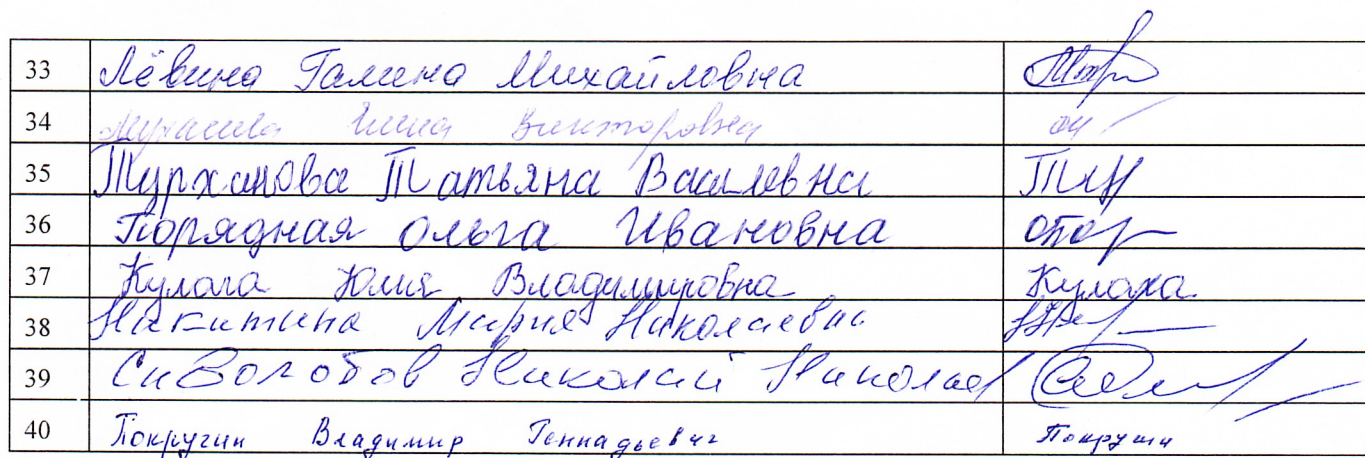 33 Лёвина Галина Михайловна
34 Викторовна
35 Турханова Татьяна Васильевна
36 Порядная Ольга Ивановна
37 Кулага Юлия Владимировна Кулага
38 Никитина Мария Николаевна
39 Сиволобов Николай Николае
40 Покругин Владимир Геннадьевич